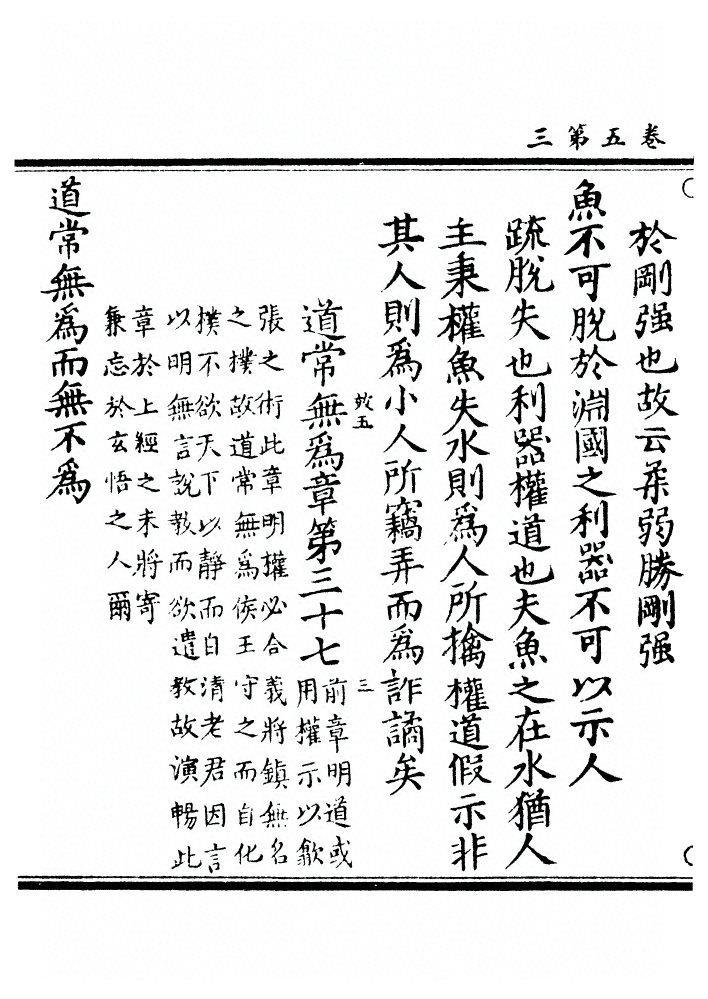 卷五第三
於剛强也故云柔弱勝剛强
魚不可脫於淵國之利器不可以示人
疏脫失也利器權道也夫魚之在水猶人
主秉權魚失水則爲人所擒權道假示非
其人則爲小人所竊弄而爲詐譎矣
效五 三
道常無爲章第三十七前章明道或
用權示以歙
張之術此章明權必合義將鎮無名
之樸故道常無爲侯王守之而自化
樸不欲天下以靜而自清老君因言
以明無言說教而欲遣教故演暢此
章於上經之末將寄
兼忘於玄悟之人爾
道常無爲而無不爲